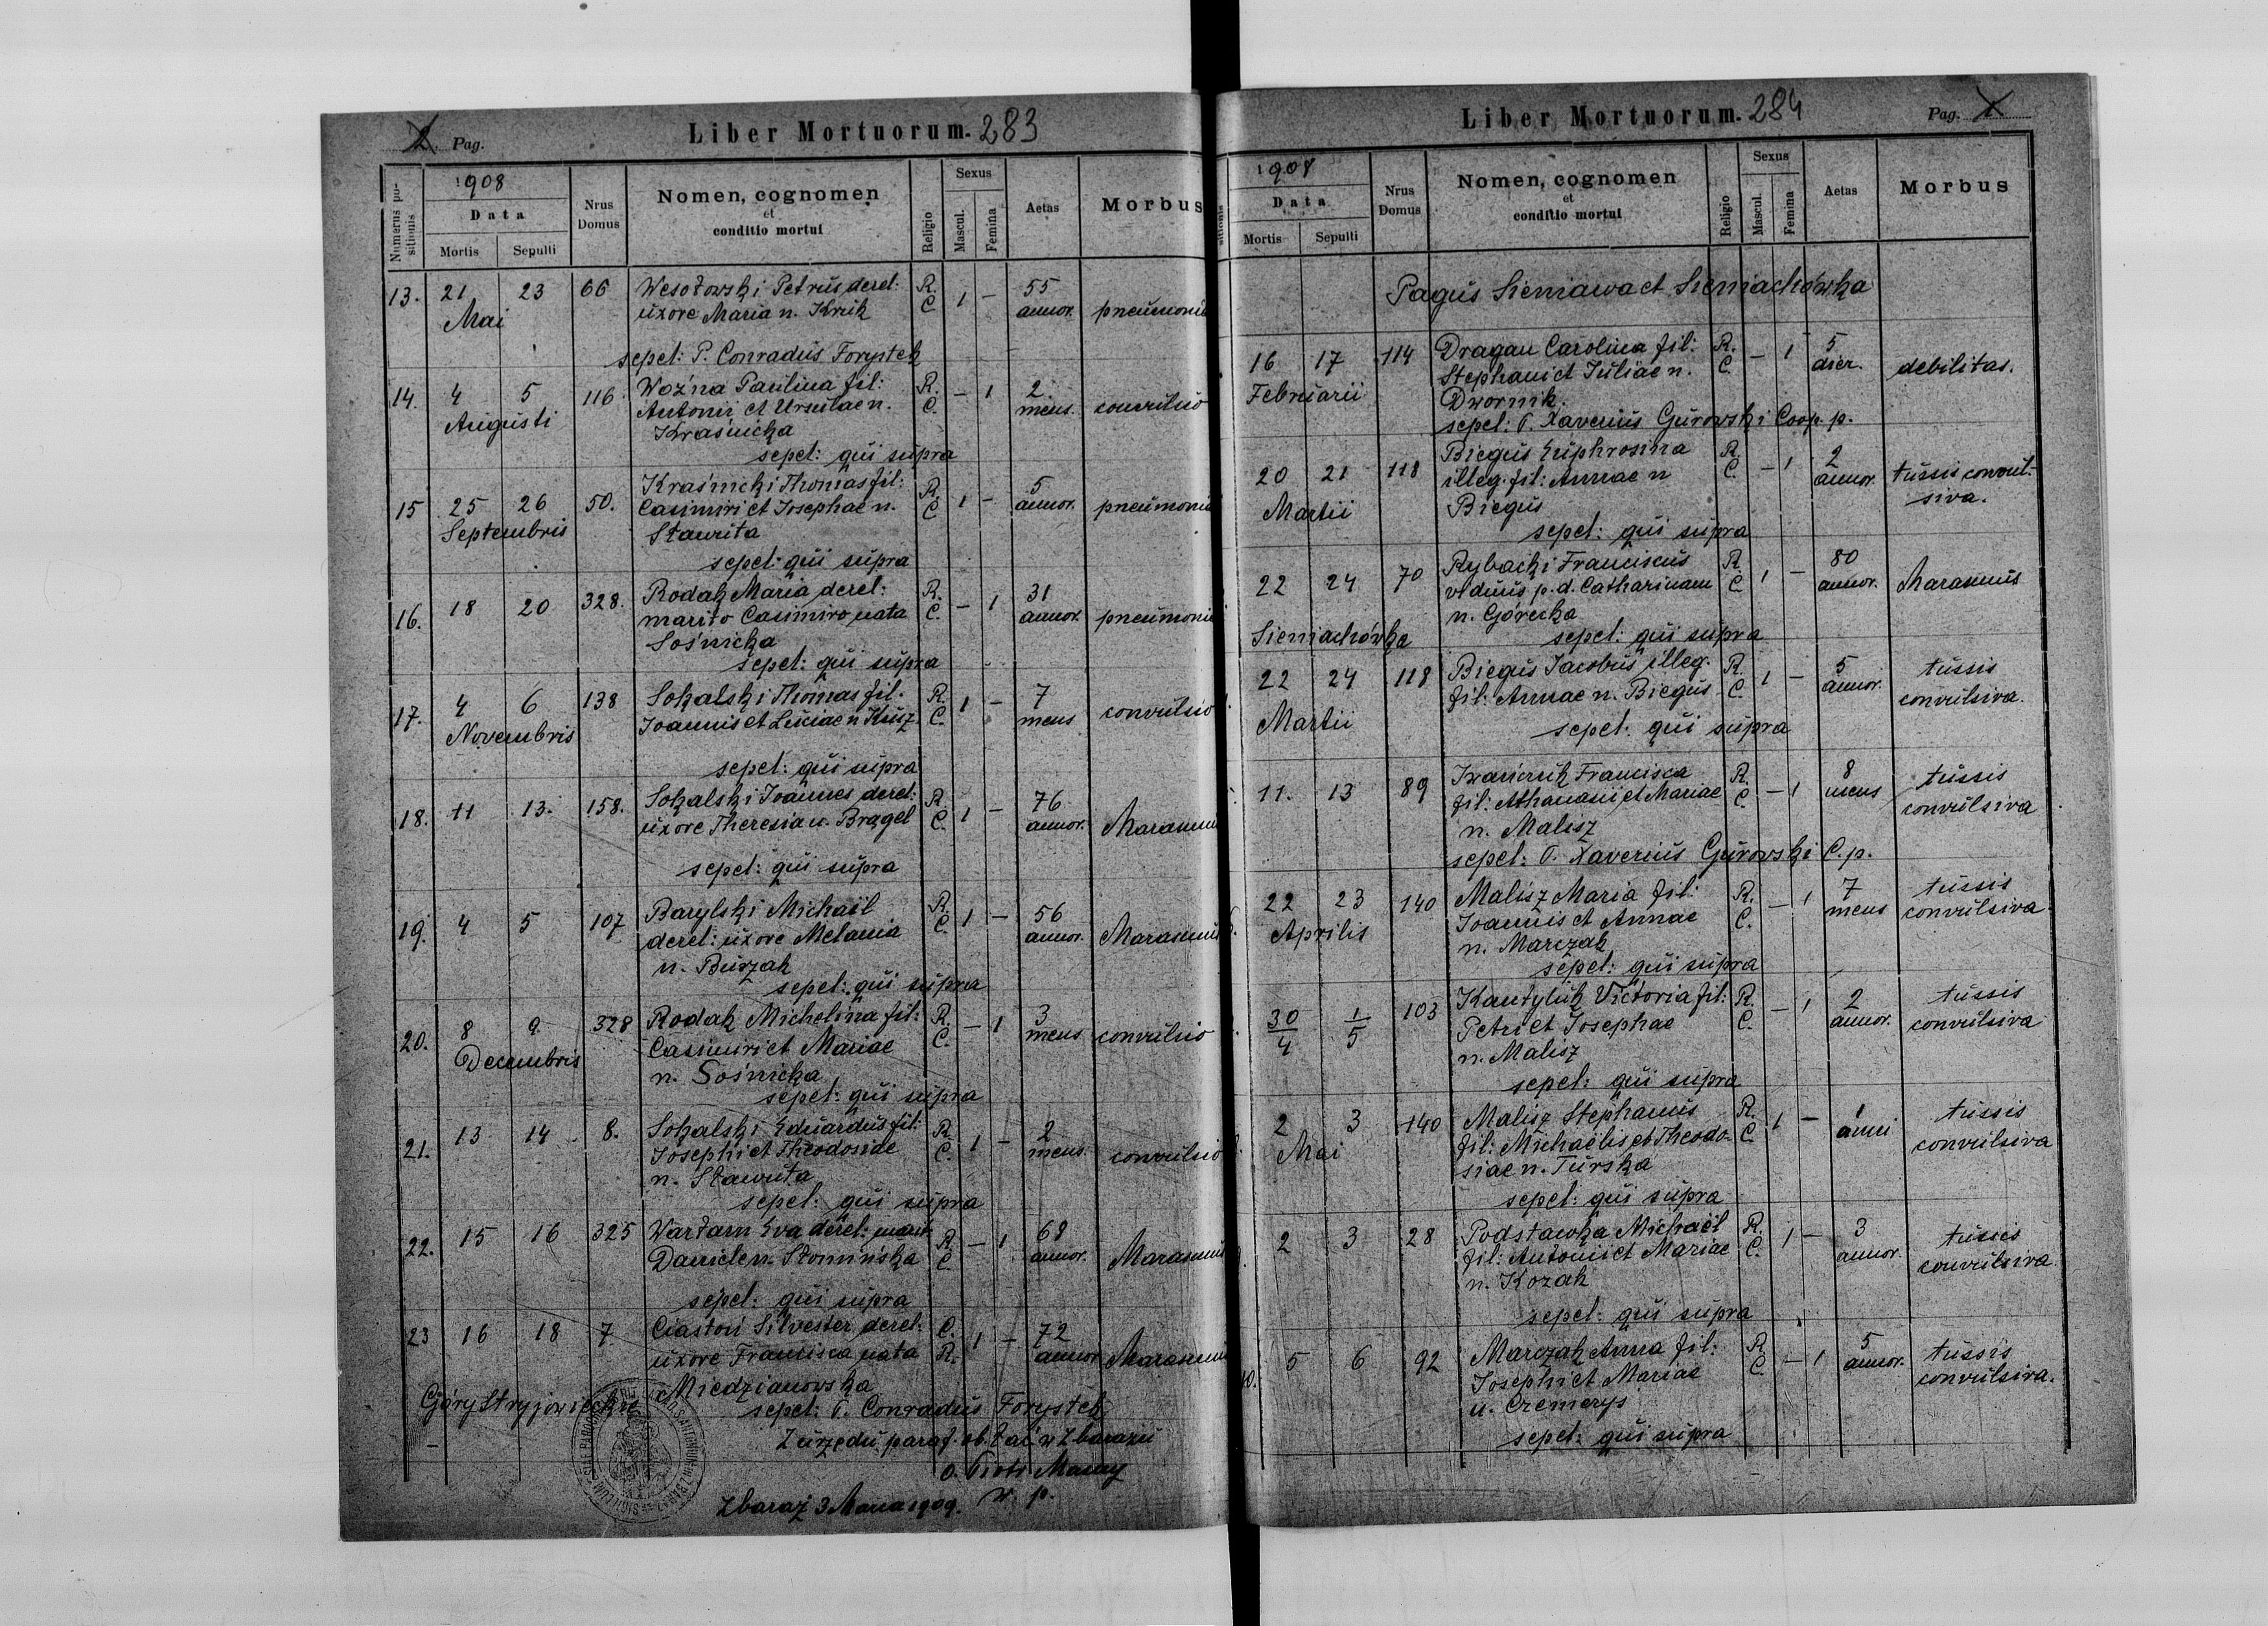 2. Pag.
Liber Mortuorum. 283
Numerus positionis
1908
Data
Mortis
Sepulti
Nrus Domus
Nomen, cognomen
et
conditio mortui
Religio
Sexus
Mascul.
Femina
Aetas
Morbus
13. 21 23 66 Wesołowski Petrus derel: R. 1 – 55
Mai uxore Maria n. Kruk C annor. pneumonia
sepel: P. Conradus Forystek
14. 4 5 116 Woźna Paulina fil: R. – 1 2.
Augusti Antonii et Ursulae n. C. mens. convulsio
Kraśnicka
sepel: qui supra
15 25 26 50. Kraśnicki Thomas fil: R. 1 – 5
Septembris Casimiri et Josephae n. C annor. pneumonia
Sławita
sepel: qui supra
16. 18 20 328. Rodak Maria derel: R. – 1 31
marito Casimiro nata C. annor. pneumonia
Sośnicka
sepel: qui supra
17. 4 6 138 Sokalski Thomas fil. R. 1 – 7
Novembris Joannis et Luciae n Kusz C. mens convulsio
sepel: qui supra
18. 11 13. 158. Sokalski Joannes derel: R. 1 – 76
uxore Theresia n. Bragel C. annor. Marasmus
sepel: qui supra
19. 4 5 107 Barylski Michaël R. 1 – 56
derel: uxore Melania C. annor. Marasmus
n. Burzak
sepel: qui supra
20. 8 9 328 Rodak Michelina fil: R. – 1 3
Decembris Casimiri et Mariae C. mens convulsio
n. Sośnicka
sepel: qui supra
21. 13 14 8. Sokalski Eduardus fil: R. 1 – 2
Josephi et Theodosiae C. mens. convulsio
n. Sławuta
sepel: qui supra
22. 15 16 325 Wartarn Eva derel: marit R. – 1 68
Daniele n. Słomińska C annor. Marasmus
sepel: qui supra
23 16 18 7. Ciastoń Silvester derel: C. 1 – 72
uxore Francisca nata R. annor Marasmus
Miedzianowska
Góry Stryjowieckie sepel: P. Conradus Forystek
Z urzędu paraf. ob. łac. w Zbarażu
o. Piotr
Zbaraż 3 Marca 1909. w. p.
Liber Mortuorum. 284
Pag. 1
sitionis
1908
Data
Mortis
Sepulti
Nrus Domus
Nomen, cognomen
et
conditio mortui
Religio
Sexus
Mascul.
Femina
Aetas
Morbus
Pagus Sieniawa et Sieniachówka
16 17 114 Dragan Carolina fil: R. – 1 5
Februarii Stephani et Juliae n. C. dier. debilitas.
Dwornik.
sepel: P. Xaverius Gurowski Coop. p.
20 21 118 Biegus Euphrosina R. – 1 2
Martii illeg. fil: Annae n C. annor. tussis convul-
Biegus siva.
sepel: qui supra
22 24 70 Rybacki Franciscus R. 1 – 80
viduus p. d. Catharinam C annor. Marasmus
n. Górecka
Sieniachówka sepel: qui supra
22 24 118 Biegus Jacobus illeg. R. 1 – 5 tussis
Martii fil: Annae n. Biegus C. annor. convulsiva.
sepel: qui supra
11. 13 89 Iwańczuk Francisca R. – 1 8 tussis
fil: Athanasii et Mariae C. mens convulsiva
n. Malisz
sepel: P. Xaverius Gurowski C. p.
22 23 140 Malisz Maria fil: R. – 1 7 tussis
Aprilis Joannis et Annae C. mens convulsiva
n. Marczak
sepel: qui supra
30/4 1/5 103 Kantyluk Victoria fil: R. – 1 2 tussis
Petri et Josephae C. annor. convulsiva
n. Malisz
sepel: qui supra
2 3 140 Malisz Stephanus R. 1 – 1 tussis
Mai fil: Michaëlis et Theodo- C. anni convulsiva
siae n. Turska
sepel: qui supra
2 3 28 Podstawka Michaël R. 1 – 3 tussis
fil: Antonii et Mariae C. annor. convulsiva
n. Kozak
sepel: qui supra
10. 5 6 92 Marczak Anna fil: R. – 1 5 tussis
Josephi et Mariae C annor. convulsiva.
n. Czemerys
sepel: qui supra